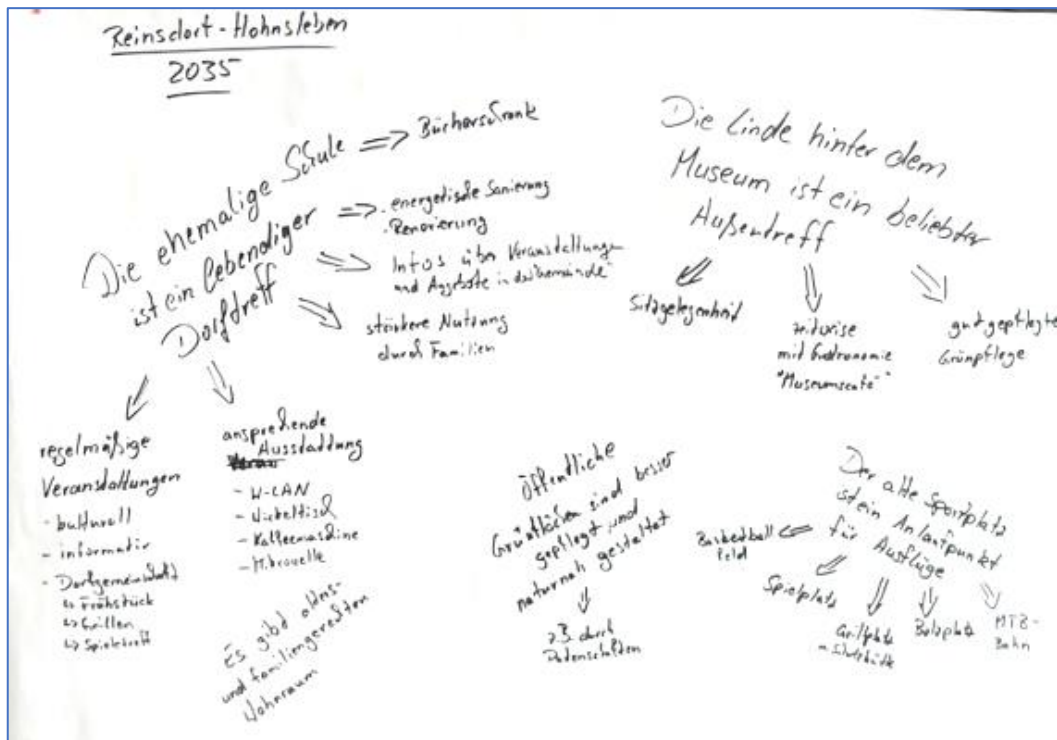 Reinsdorf-Hohnsleben
2035
Die ehemalige Schule
ist ein lebendiger
Dorftreff
=> Bücherschrank
=> . energetische Sanierung
. Renovierung
=> Infos über Veranstaltungen
und Angebote in der Gemeinde
=> stärkere Nutzung
durch Familien
regelmäßige
Veranstaltungen
- kulturell
- informativ
- Dorfgemeinschaft
↳ Frühstück
↳ Grillen
↳ Spieletreff
ansprechende
Ausstattung
- W-LAN
- Wickeltisch
- Kaffeemaschine
- Mikrowelle
Es gibt alters-
und familiengerechten
Wohnraum
Die Linde hinter dem
Museum ist ein beliebter
Außentreff
Sitzgelegenheit
zeitweise
mit Gastronomie
"Museumscafé"
gut gepflegte
Grünpflege
Öffentliche
Grünflächen sind besser
gepflegt und
naturnah gestaltet
z.B. durch
Patenschaften
Der alte Sportplatz
ist ein Anlaufpunkt
für Ausflüge
Basketball
Feld
Spielplatz
Grillplatz
m. Schutzhütte
Bolzplatz
MTB-
Bahn